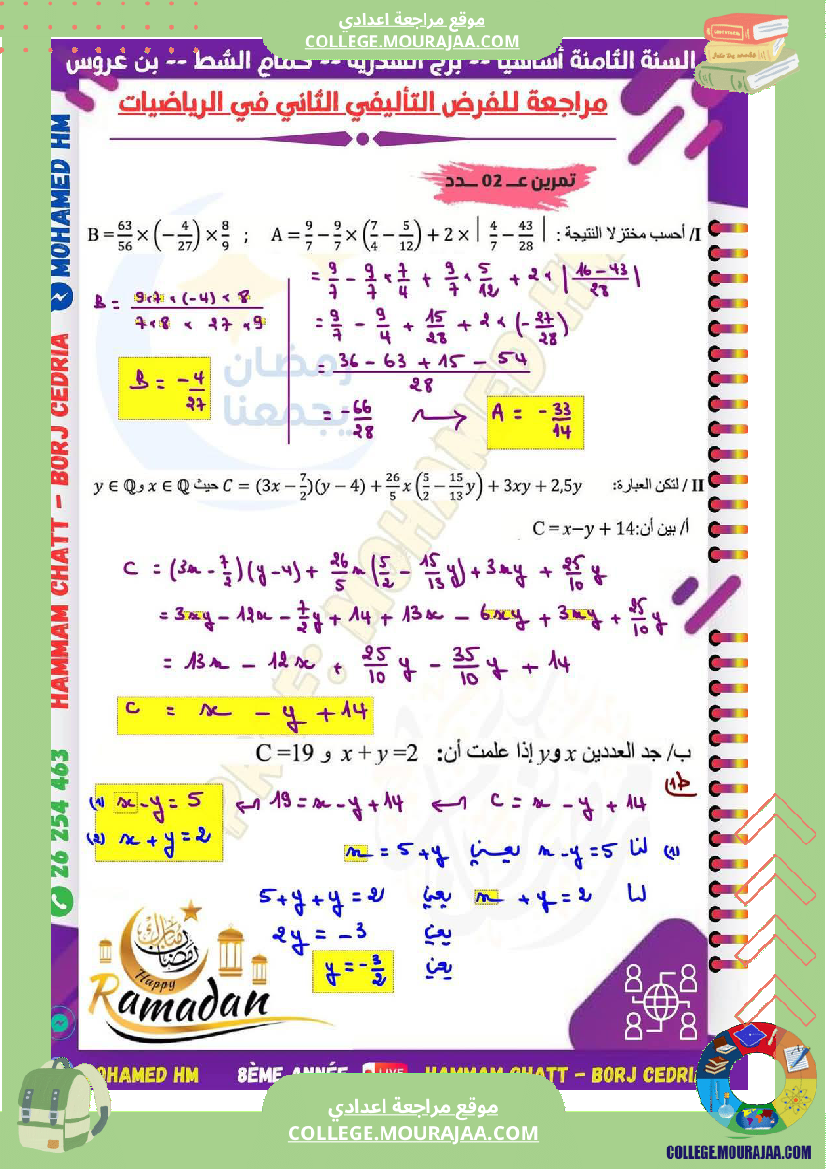 موقع مراجعة اعدادي
COLLEGE.MOURAJAA.COM
السنة الثامنة أساسيا -- برج السدرية -- حمام الشط -- بن عروس
مراجعة للفرض التأليفي الثاني في الرياضيات
تمرين عـــ 02 ـــدد
I/ أحسب مختزلا النتيجة : A = 9/7 − 9/7 × (7/4 − 5/12) + 2 × | 4/7 − 43/28 | ; B = 63/56 × (− 4/27) × 8/9
= 9/7 − 9/7 × 7/4 + 9/7 × 5/12 + 2 × |16 − 43/28|
B = 9×7 × (−4) × 8 / 7×8 × 27 × 9
= 9/7 − 9/4 + 15/28 + 2 × (− 27/28)
= 36 − 63 + 15 − 54 / 28
B = −4/27
= −66/28 ⟶ A = − 33/14
II / لتكن العبارة: C = (3x − 7/2)(y − 4) + 26/5 x(5/2 − 15/13 y) + 3xy + 2,5y حيث x ∈ ℚ و y ∈ ℚ
أ/ بين أن: C = x−y + 14
C = (3x − 7/2)(y − 4) + 26/5 x(5/2 − 15/13 y) + 3xy + 25/10 y
= 3xy − 12x − 7/2 y + 14 + 13x − 6xy + 3xy + 25/10 y
= 13x − 12x + 25/10 y − 35/10 y + 14
C = x − y + 14
ب/ جد العددين x و y إذا علمت أن: x + y =2 و C =19
ط1)
C = x − y + 14 ↩ 19 = x − y + 14 ↩ (1) x − y = 5
(2) x + y = 2
(1) لنا x − y = 5 يعني x = 5 + y
لنا x + y = 2 يعني 5 + y + y = 2
يعني 2y = −3
يعني y = − 3/2
رمضان يجمعنا
PAGE: MOHAMED HM
رمضان مبارك
Happy
Ramadan
MOHAMED HM
HAMMAM CHATT - BORJ CEDRIA
26 254 463
MOHAMED HM 8ÈME ANNÉE LIVE HAMMAM CHATT - BORJ CEDRIA
موقع مراجعة اعدادي
COLLEGE.MOURAJAA.COM
COLLEGE.MOURAJAA.COM